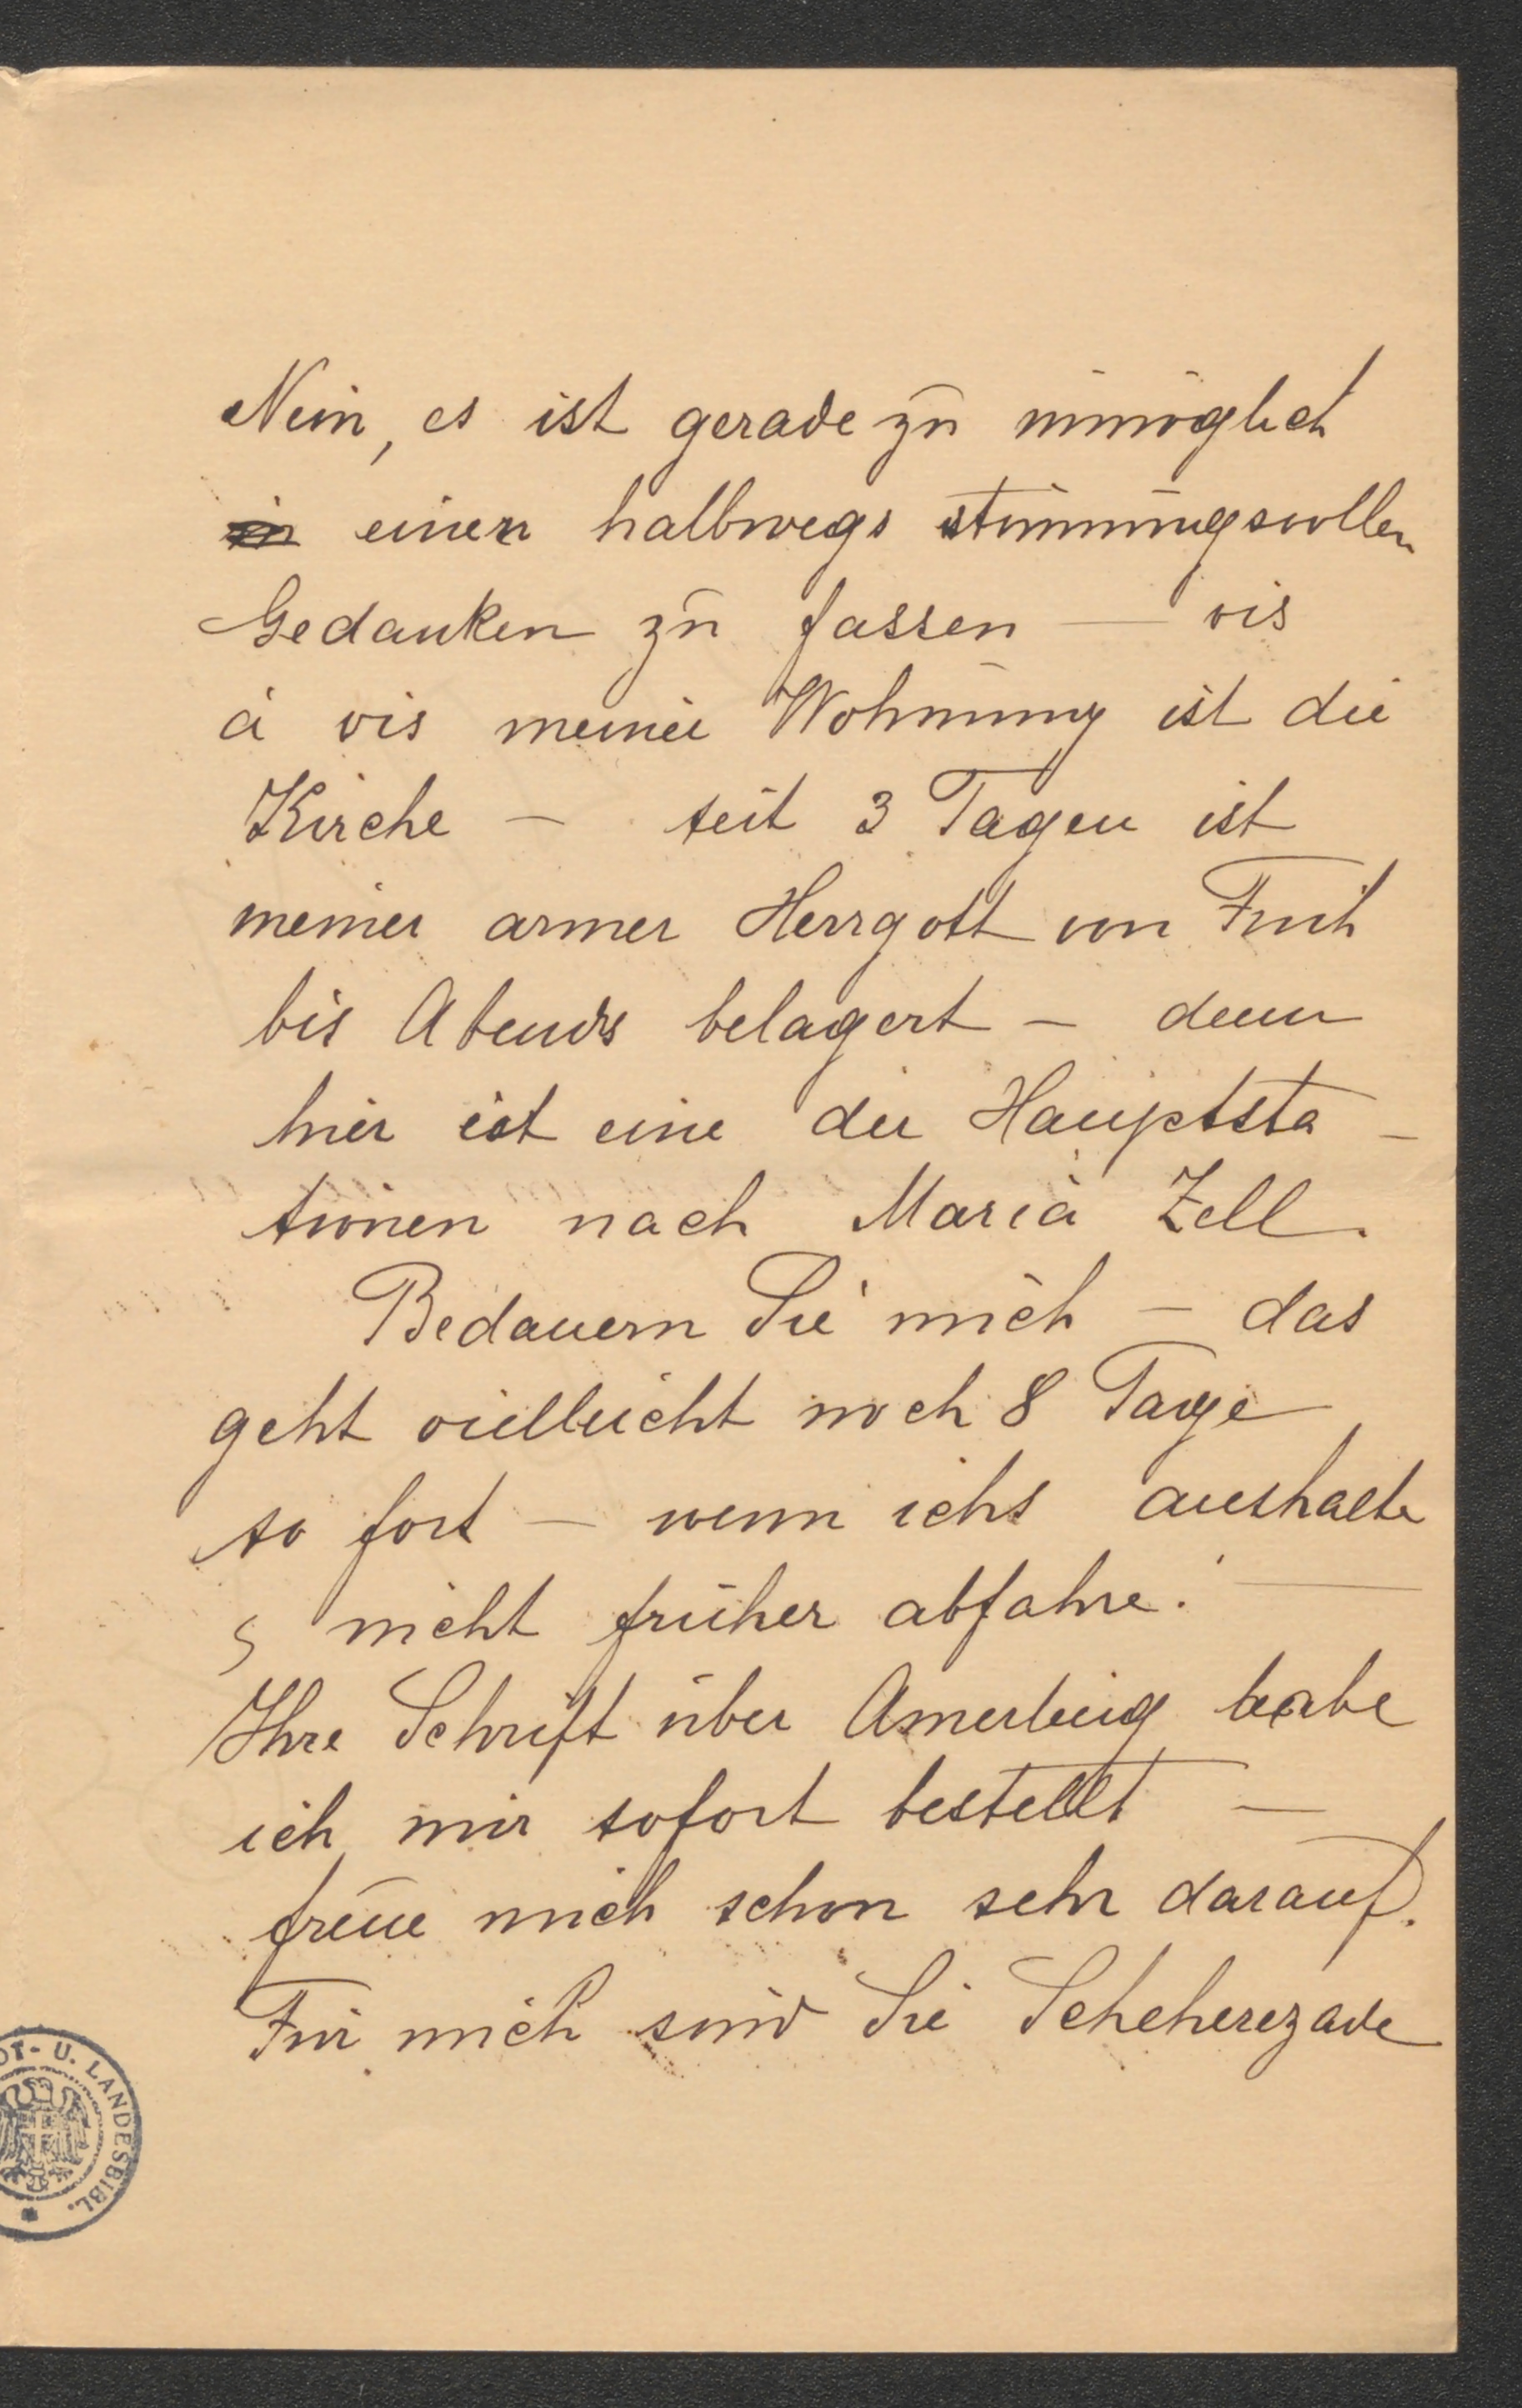 Nein, es ist gerade zu unmöglich
in einen halbwegs stimmungsvollen
Gedanken zu fassen — vis
à vis meiner Wohnung ist die
Kirche — seit 3 Tagen ist
meiner armer Herrgott von Früh
bis Abends belagert — denn
hier ist eine der Hauptsta-
tionen nach Maria Zell.
Bedauern Sie mich — das
geht vielleicht noch 8 Tage
so fort — wenn ichs aushalte
& nicht früher abfahre. —
Ihre Schrift über Amerling habe
ich mir sofort bestellt —
freue mich schon sehr darauf.
Für mich sind Sie Scheherezade
U. LANDESBIBL.